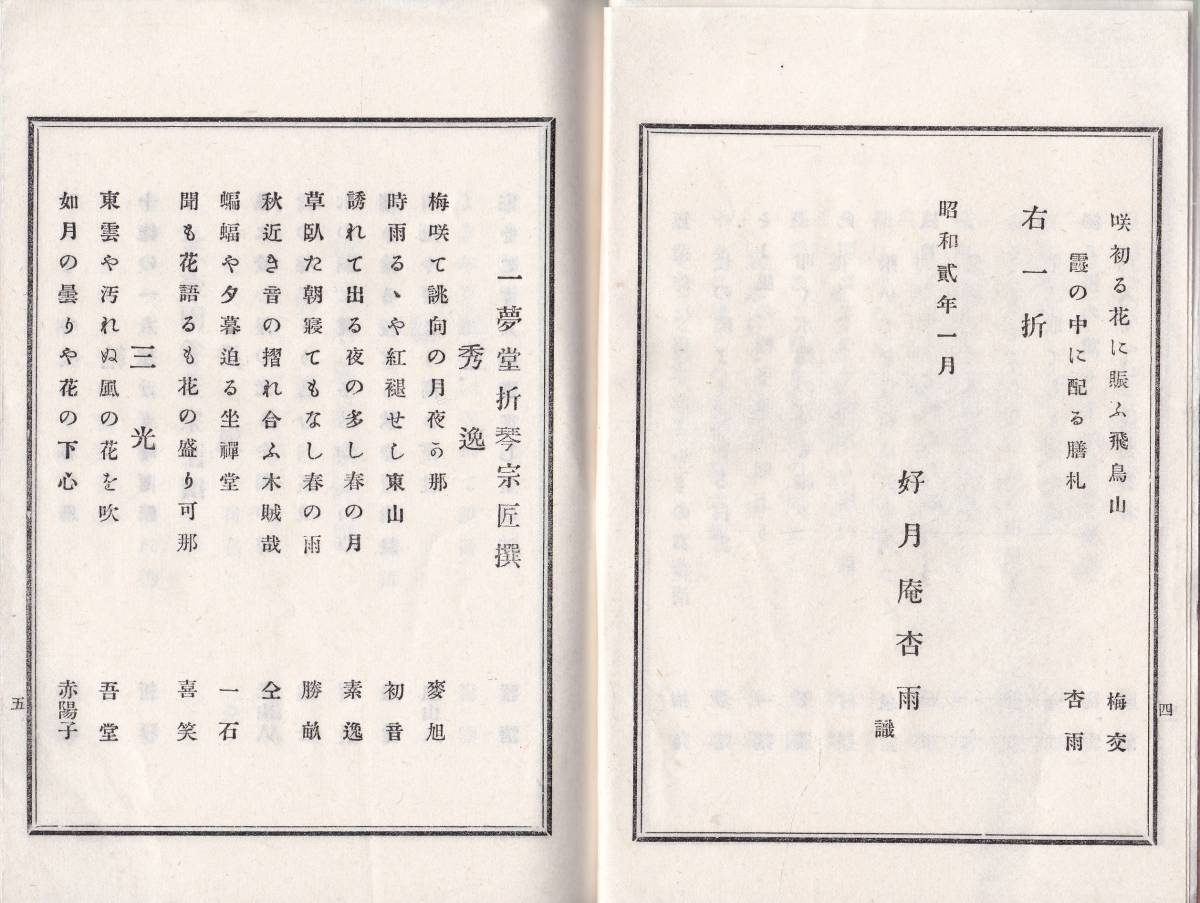 咲初る花に賑ふ飛鳥山 梅交
霞の中に配る膳札 杏雨
右一折
昭和貳年一月
好月庵杏雨識
四
一夢堂折琴宗匠撰
秀逸
梅咲て誂向の月夜う那 麥旭
時雨るゝや紅褪せし東山 初音
誘れて出る夜の多し春の月 素逸
草臥た朝寢てもなし春の雨 勝畝
秋近き音の摺れ合ふ木賊哉 仝
蝙蝠や夕暮迫る坐禪堂 一石
聞も花語るも花の盛り可那 喜笑
三光
東雲や汚れぬ風の花を吹 吾堂
如月の曇りや花の下心 赤陽子
五